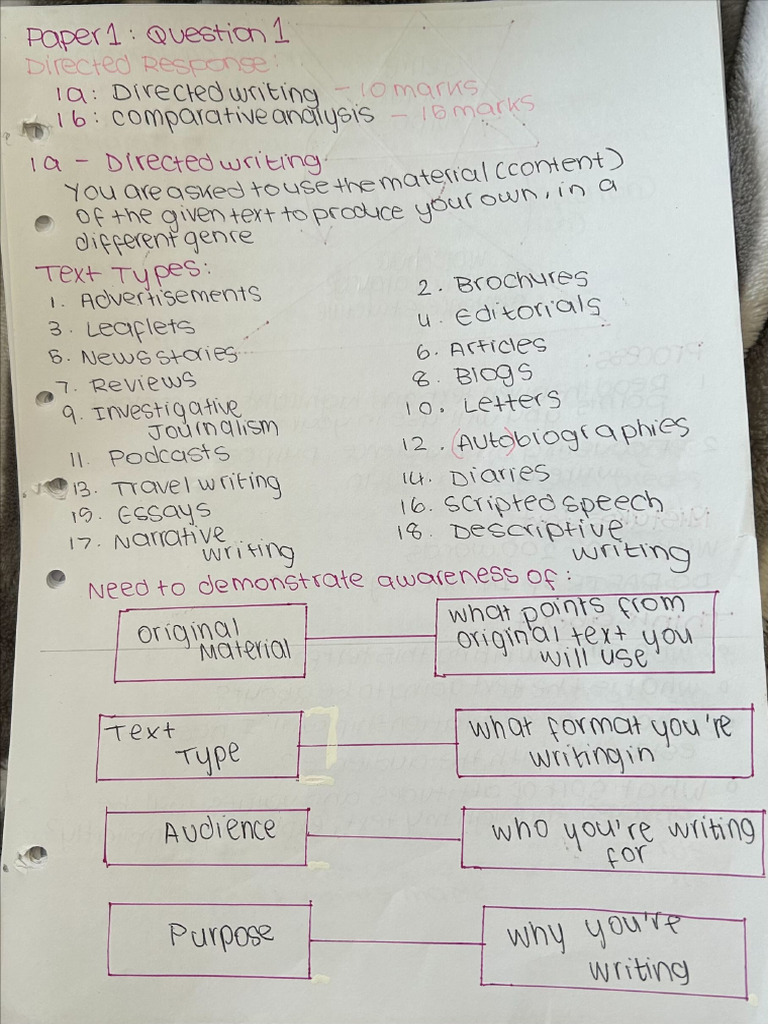 Paper 1: Question 1
Directed Response:
1a: Directed writing - 10 marks
1b: comparative analysis - 15 marks
1a - Directed writing
You are asked to use the material (content)
of the given text to produce your own, in a
different genre
Text Types:
1. Advertisements
2. Brochures
3. Leaflets
4. Editorials
5. News stories
6. Articles
7. Reviews
8. Blogs
9. Investigative
Journalism
10. Letters
11. Podcasts
12. (Auto)biographies
13. Travel writing
14. Diaries
15. Essays
16. Scripted speech
17. Narrative
writing
18. Descriptive
writing
Need to demonstrate awareness of:
Original
Material
what points from
original text you
will use
Text
Type
what format you're
writing in
Audience
who you're writing
for
Purpose
why you're
writing